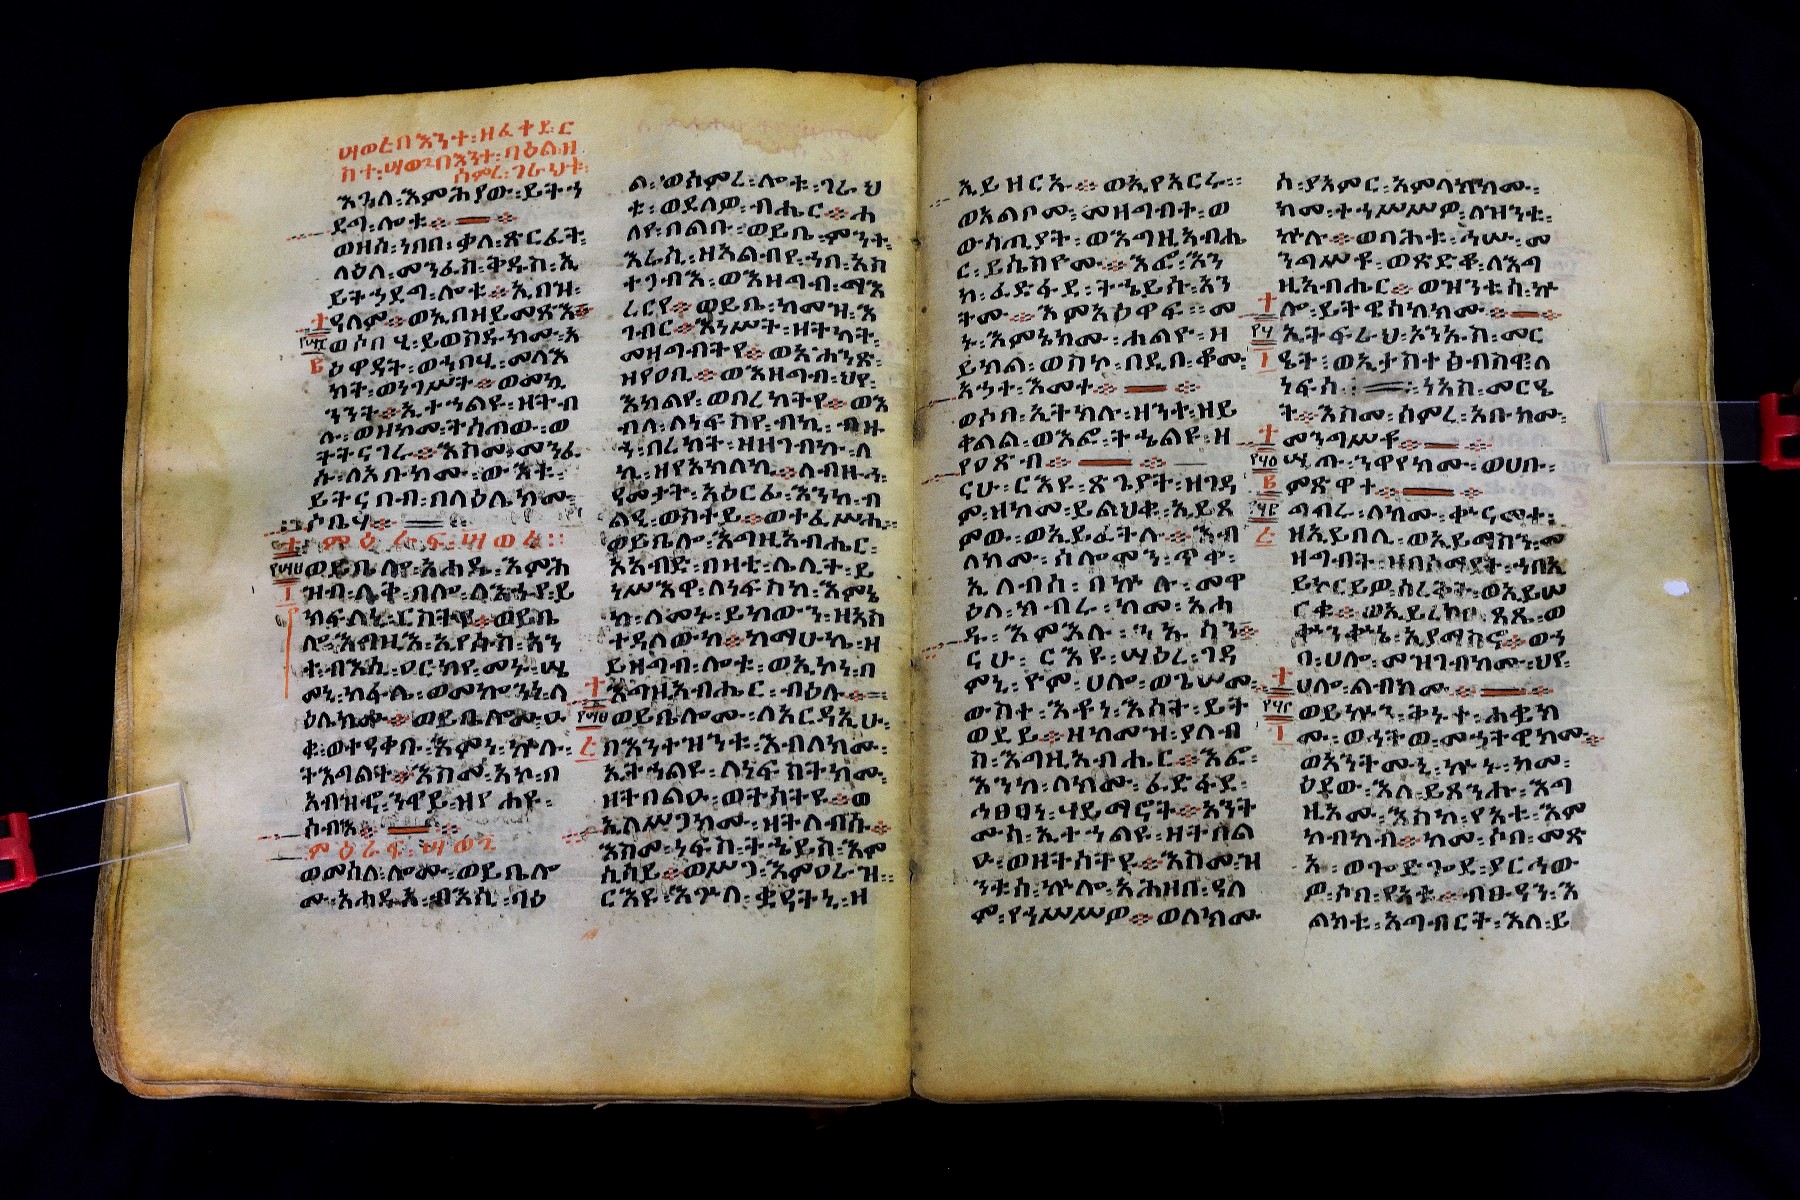 በእንተ፡ዘፈተደ፡ር
ስተ፡በእንተ፡ባዕል፡ዘ
ሰምረ፡ገራህቱ፡
እጓለ፡እምሕያው፡ይትኀ
ደግ፡ሎቱ፨
ወዘሰ፡ነበበ፡ቃለ፡ጽርፈት፡
ላዕለ፡መንፈስ፡ቅዱስ፡ኢ
ይትኀደግ፡ሎቱ፨ኢበዝ፡
ዓለም፨ወኢበዘይመጽእ፨
ወሶበ፡ሂ፡ይወስዱክሙ፡አ
ዕዋዳት፡ወኀበሂ፡መላእ
ክት፡ወነገሥት፨ወመኳ
ንንት፨ኢተኀልዩ፡ዘትብ
ሉ፡ወዘከመ፡ትሰጠው፡ወ
ትትናገሩ፨እስመ፡መንፈ
ሱ፡ለአቡክሙ፡ውእቱ፡
ይትናበብ፡በላዕሌክሙ፡
ሶቤሃ፨
ምዕራፍ፡
ወይቤሎ፡አሐዱ፡እምሕ
ዝብ፡ሊቅ፡በሎ፡ለእኁየ፡ይ
ክፍለኒ፡ርስትየ፨ወይቤ
ሎ፡እግዚእ፡ኢየሱስ፡አን
ተ፡ብእሲ፡ዐርክየ፡መኑ፡ሤ
መኒ፡ከፋሌ፡ወመኰንነ፡ላ
ዕሌክሙ፨ወይቤሎሙ፡ዑ
ቁ፡ወተዓቀቡ፡እምነ፡ኵሉ፡
ትእግልት፨እስመ፡አኮ፡በ
አብዝኆ፡ንዋይ፡ዘየሐዩ፡
ሰብእ፨
ምዕራፍ፡
ወመሰለ፡ሎሙ፡ወይቤሎ
ሙ፡አሐዱ፡ብእሲ፡ባዕ
ል፡ወሰምረ፡ሎቱ፡ገራህ
ቱ፡ወደለዎ፡ብሔር፨ሐ
ለየ፡በልቡ፡ወይቤ፡ምንተ፡
እሬሲ፡ዘአልብየ፡ኀበ፡አስ
ተጋብእ፡ወእዘግብ፡ማእ
ረርየ፨ወይቤ፡ከመዝ፡እ
ገብር፨እነሥት፡ዘትካት፡
መዛግብትየ፨ወአሐንጽ፡
ዘየዐቢ፨ወእዘግብ፡ህየ፡
እክልየ፡ወበረከትየ፨ወእ
ብላ፡ለነፍስየ፡ብኪ፡ብዙ
ኀ፡በረከት፡ዘዘገብኩ፡ለ
ኪ፡ዘየአክለኪ፨ለብዙኀ፡
ዓመታት፡አዕርፊ፡እንከ፡ብ
ልዒ፡ወስተይ፨ወተፈሥሒ፡
ወይቤሎ፡እግዚአብሔር፡
አአብድ፡በዛቲ፡ሌሊት፡ይ
ነሥእዋ፡ለነፍስከ፡እምኔ
ከ፡ለመኑ፡ይከውን፡ዘአስ
ተዳለውከ፨ከማሁኬ፡ዘ
ይዘግብ፡ሎቱ፡ወኢኮነ፡በ
እግዚአብሔር፡ብዕሉ፨
ወይቤሎሙ፡ለአርዳኢሁ፡
በእንተዝንቱ፡እብለክሙ፡
ኢትኀልዩ፡ለነፍስትክሙ፡
ዘትበልዑ፡ወትሰትዩ፨ወ
ኢለሥጋክሙ፡ዘትለብሱ፨
እስመ፡ነፍስ፡ትኄይስ፡እም
ሲሲይ፨ወሥጋ፡እምዐራዝ፡
ርእዩ፡እጕለ፡ቋዓትኒ፡ዘ
ኢይዘርኡ፨ወኢየአርሩ፡፡
ወአልቦሙ፡መዛግብት፡ወ
ውሳጢያት፡ወእግዚአብሔ
ር፡ይሴስዮሙ፨እፎ፡እን
ከ፡ፈድፋደ፡ትኄይሱ፡አን
ትሙ፨እምአዕዋፍ፡፡መ
ኑ፡እምኔክሙ፡ሐልዮ፡ዘ
ይክል፡ወስኮ፡በዲበ፡ቆሙ፡
አኀተ፡እመተ፨
ወሶበ፡ኢትክሉ፡ዘንተ፡ዘይ
ቀልል፡ወእፎ፡ትኄልዩ፡ዘ
የዐጽብ፨
ርእዩ፡ጽጌያተ፡ዘገዳ
ም፡ዘከመ፡ይልህቁ፡ኢይጻ
ምው፡ወኢይፈትሉ፨እብ
ለክሙ፡ሰሎሞን፡ጥቀ፡
ኢለብሰ፡በኵሉ፡መዋ
ዕለ፡ክብሩ፡ከመ፡አሐ
ዱ፡እምእሉ፡
ሣዕረ፡ገዳ
ምኒ፡ዮም፡ሀሎ፡ወጌሠመ፡
ውስተ፡እቶነ፡እሳት፡ይት
ወደይ፨ዘከመዝ፡ያለብ
ስ፡እግዚአብሔር፨እፎ፡
እንከ፡ለክሙ፡ፈድፋደ፡
ኅፀፀነ፡ሃይማኖት፨አንት
ሙሰ፡ኢተኀልዩ፡ዘትበል
ዑ፡ወዘትሰትዩ፨እስመ፡ዝ
ንቱሰ፡ኵሎ፡አሕዛበ፡ዓለ
ም፡የኀሥሥዎ፨ወለክሙ
ሰ፡ያአምር፡አምላክክሙ፡
ከመ፡ትኀሥሥዎ፡ለዝንቱ፡
ኵሉ፨ወባሕቱ፡ኅሡ፡መ
ንግሥቶ፡ወጽድቆ፡ለእግ
ዚአብሔር፨ወዝንቱሰ፡ኵ
ሎ፡ይትዌሰከክሙ፨
ኢትፍራህ፡ኦንኡስ፡መር
ዔት፡ወኢታስተፅብስዋ፡ለ
ነፍስ፡፡ነአስ፡መርዔ
ት፨እስመ፡ሰምረ፡አቡክሙ፡
መንግሥቶ፨
ሢጡ፡ንዋየክሙ፡ወሀቡ፡
ምጽዋተ፨
ግብሩ፡ለክሙ፡ቍናመተ፡
ዘኢይበሊ፡ወኢይማስን፡መ
ዝገብት፡ዘበሰማያት፡ኀበኢ
ይኮርይዎ፡ሰረቅት፡ወኢይሠ
ርቁ፨ወኢይረክቦ፡ጻጼ፡ወ
ቍንቍኔ፡ኢያማስኖ፨ወኀ
በ፡ሀሎ፡መዝገብክሙ፡ህየ፡
ሀሎ፡ልብክሙ፨
ወይኩን፡ቅኑተ፡ሐቌክ
ሙ፡ወኅትወ፡መኀትዊክሙ፨
ወአንትሙኒ፡ኵኑ፡ከመ፡
ዕደው፡እለ፡ይጸንሑ፡እግ
ዚእሙ፡እስከ፡የአቱ፡እም
ከብካብ፨ከመ፡ሶበ፡መጽ
አ፡ወጐድጐደ፡ያርኅው
ዎ፡ሶበ፡የአቱ፨ብፁዓን፡እ
ልክቱ፡አግብርት፡እለ፡ይ